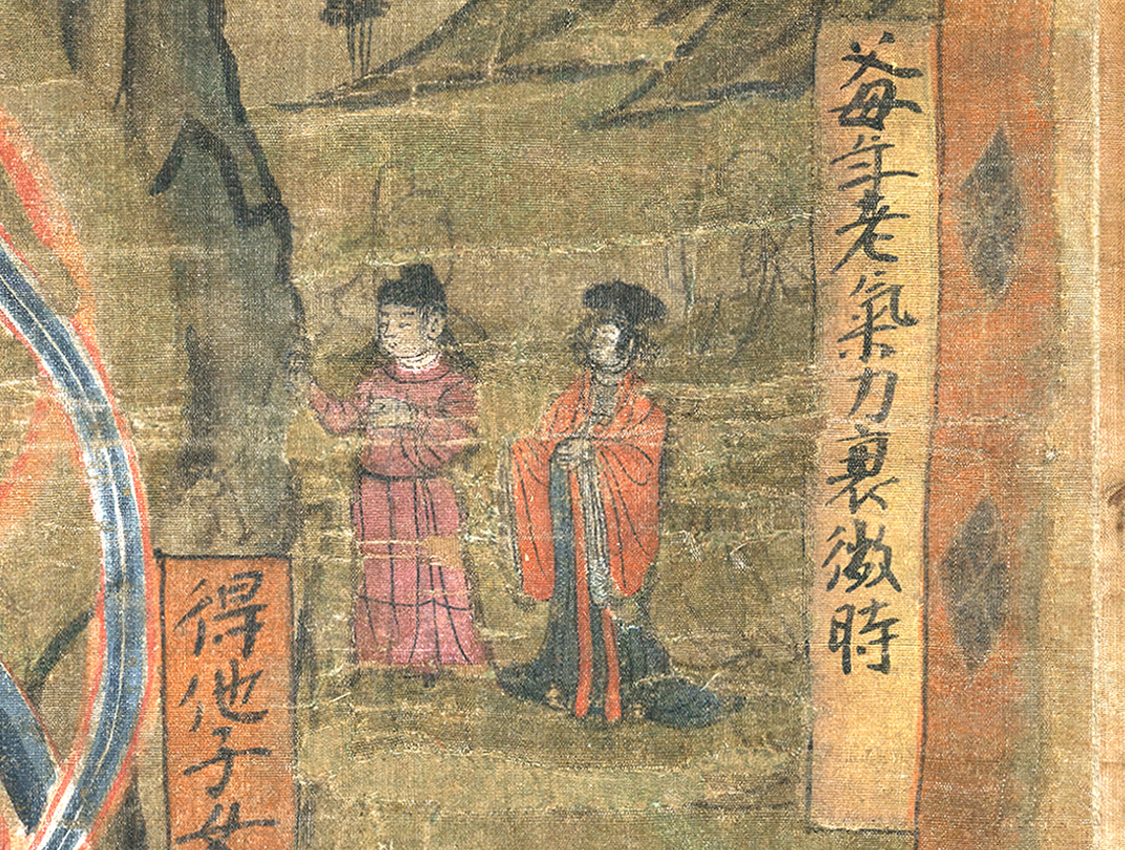 父母年老氣力衰微時
得他子女